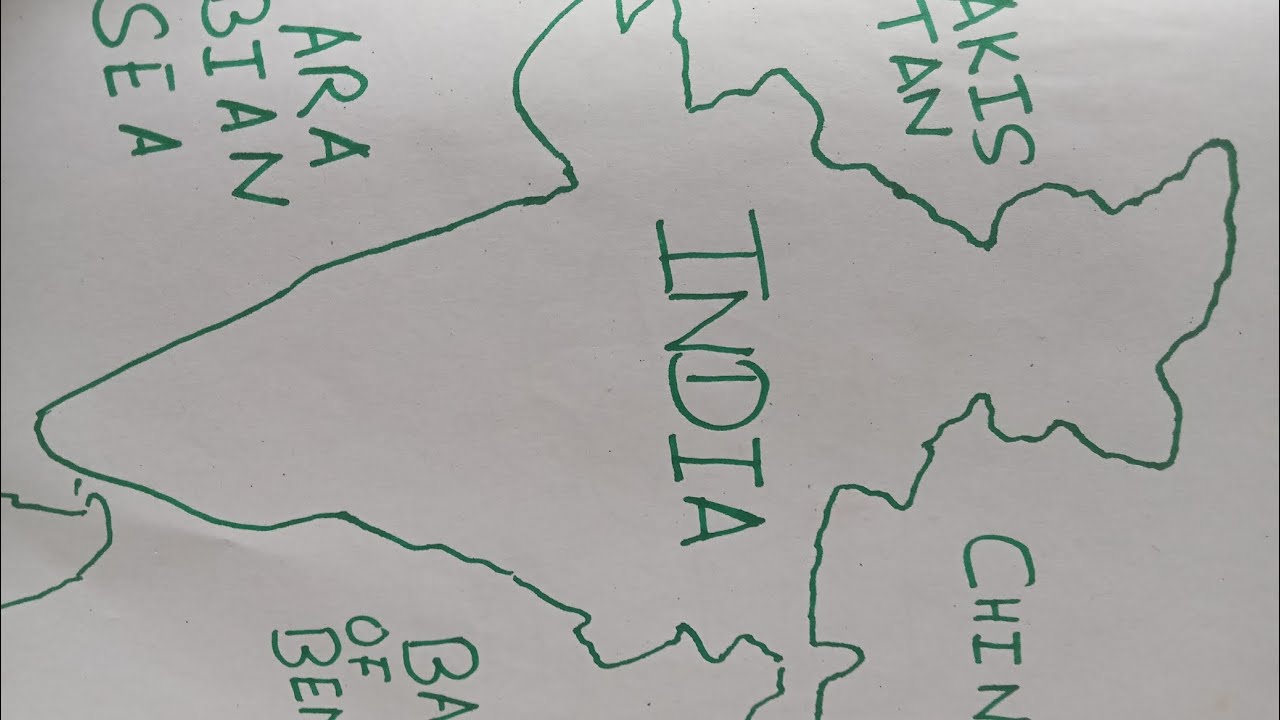 AKIS
TAN
CHIN
INDIA
ARA
BIAN
SEA
BA
OF
BEN